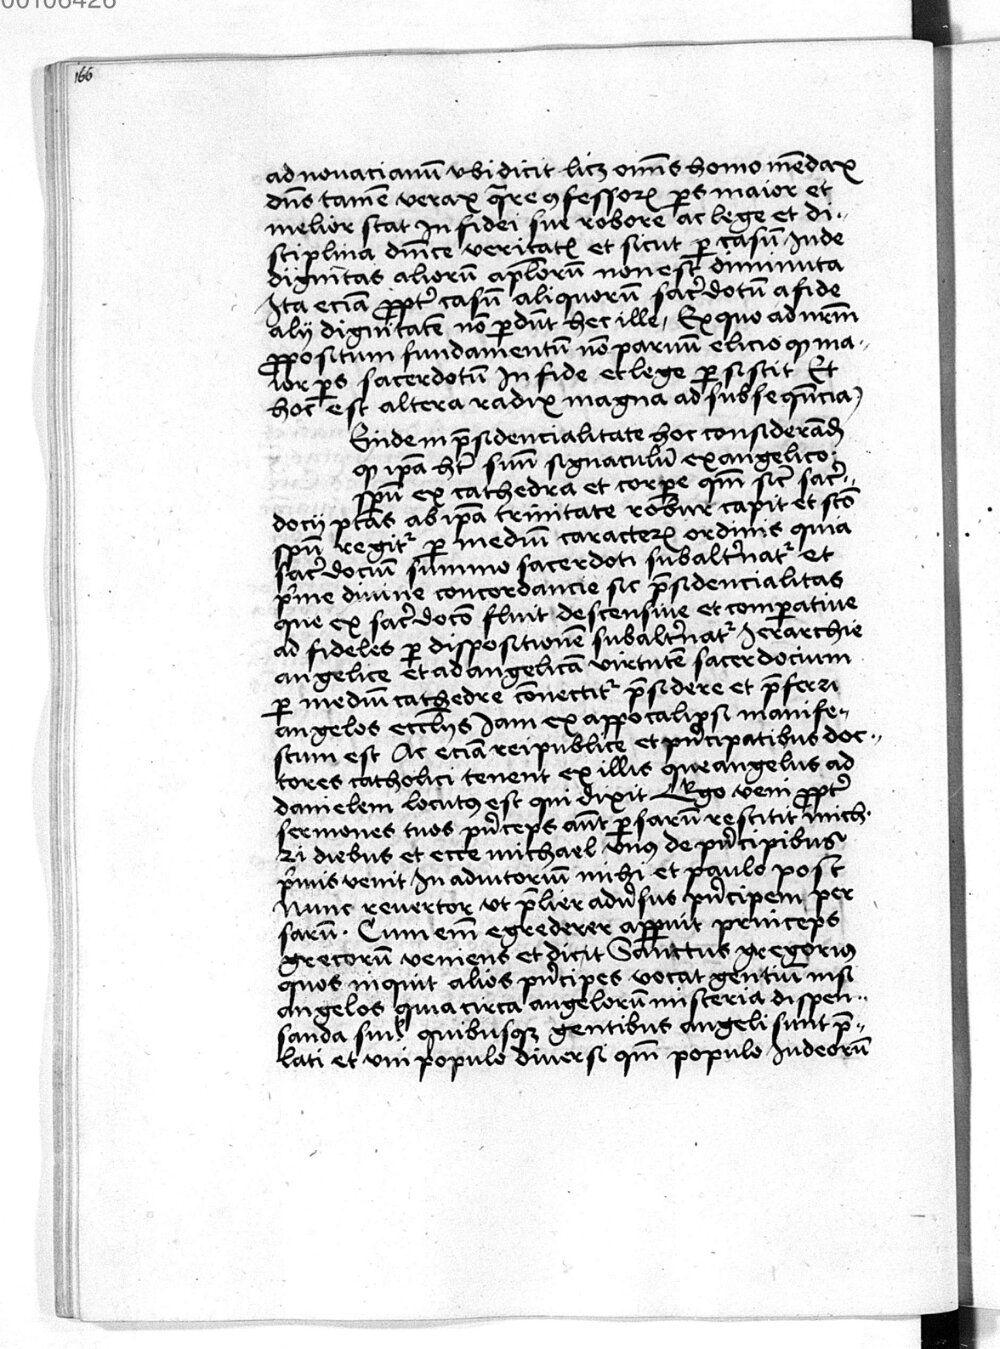 00106426
166
ad nouacianū vbi dicit licz om̄s homo mēdax
dn̄s tamē verax q̄re ꝯfessorꝝ ps maior et
melior stat In fidei sue robore ac lege et di-
sciplina dn̄ice veritatꝭ et sicut ꝑ casū Jude
dignitas aliorū apl̄orū non est diminuta
Ita eciā ꝓpt̾ casū aliquorū sac̾dotū a fide
alij dignitatē nō ꝑdūt hec ille, Ex quo ad nr̄m
ꝓpositum fundamentū nō paruū elicio ꝙ ma-
ior ps sacerdotū In fide et lege ꝑsistit Et
hoc est altera radix magna ad subseqūcia
Eiidem p̄sidencialitate hoc considerād
ꝙ ipa hꝫ suū signaculū ex angelico
spū ex cathedra et corpe qm̄ sic̾ sac̾-
docij ptās ab ipa trinitate robur capit et scō
spū regit᷑ ꝑ mediū caracterꝭ ordinis quia
sac̾dociū summo sacerdoti subalt̾nat᷑ et
p̾me diuine concordancie sic p̄sidencialitas
que ex sac̾docō fluit descensiue et comparatiue
ad fideles ꝑ dispositionē subalt̾nat᷑ Ierarchie
angelice et ad angelicā virtutē sacerdocium
ꝑ mediū cathedre cōnectit᷑ p̄sidere et p̄ferri
angelos eccl̄ijs Jam ex appocalipsi manife-
stum est Ac eciā reipublice et pn̾cipatibus doc-
tores catholici tenent ex illis que angelus ad
danielem locutꝰ est qui dixit Ego veni ꝓpt̾
sermones tuos pn̾ceps aūt ꝑsarū restitit mich
xxi diebus et ecce michael vnꝰ de pn̾cipibus
p̾mis venit In adiutoriū mihi et paulo post
Nunc reuertor vt p̄lier adu̾sus pn̾cipem per
sarū. Cum em̄ egrederer apparuit princeps
grecorū veniens et dicit Sanctus gregoriꝰ
quos inquit alios pn̾cipes vocat gentiū nisi
angelos quia circa angelorū misteria dispen-
sanda quibusqꝫ gentibus angeli sunt p̄-
lati et vni populo diuersi qm̄ populo Judeorū